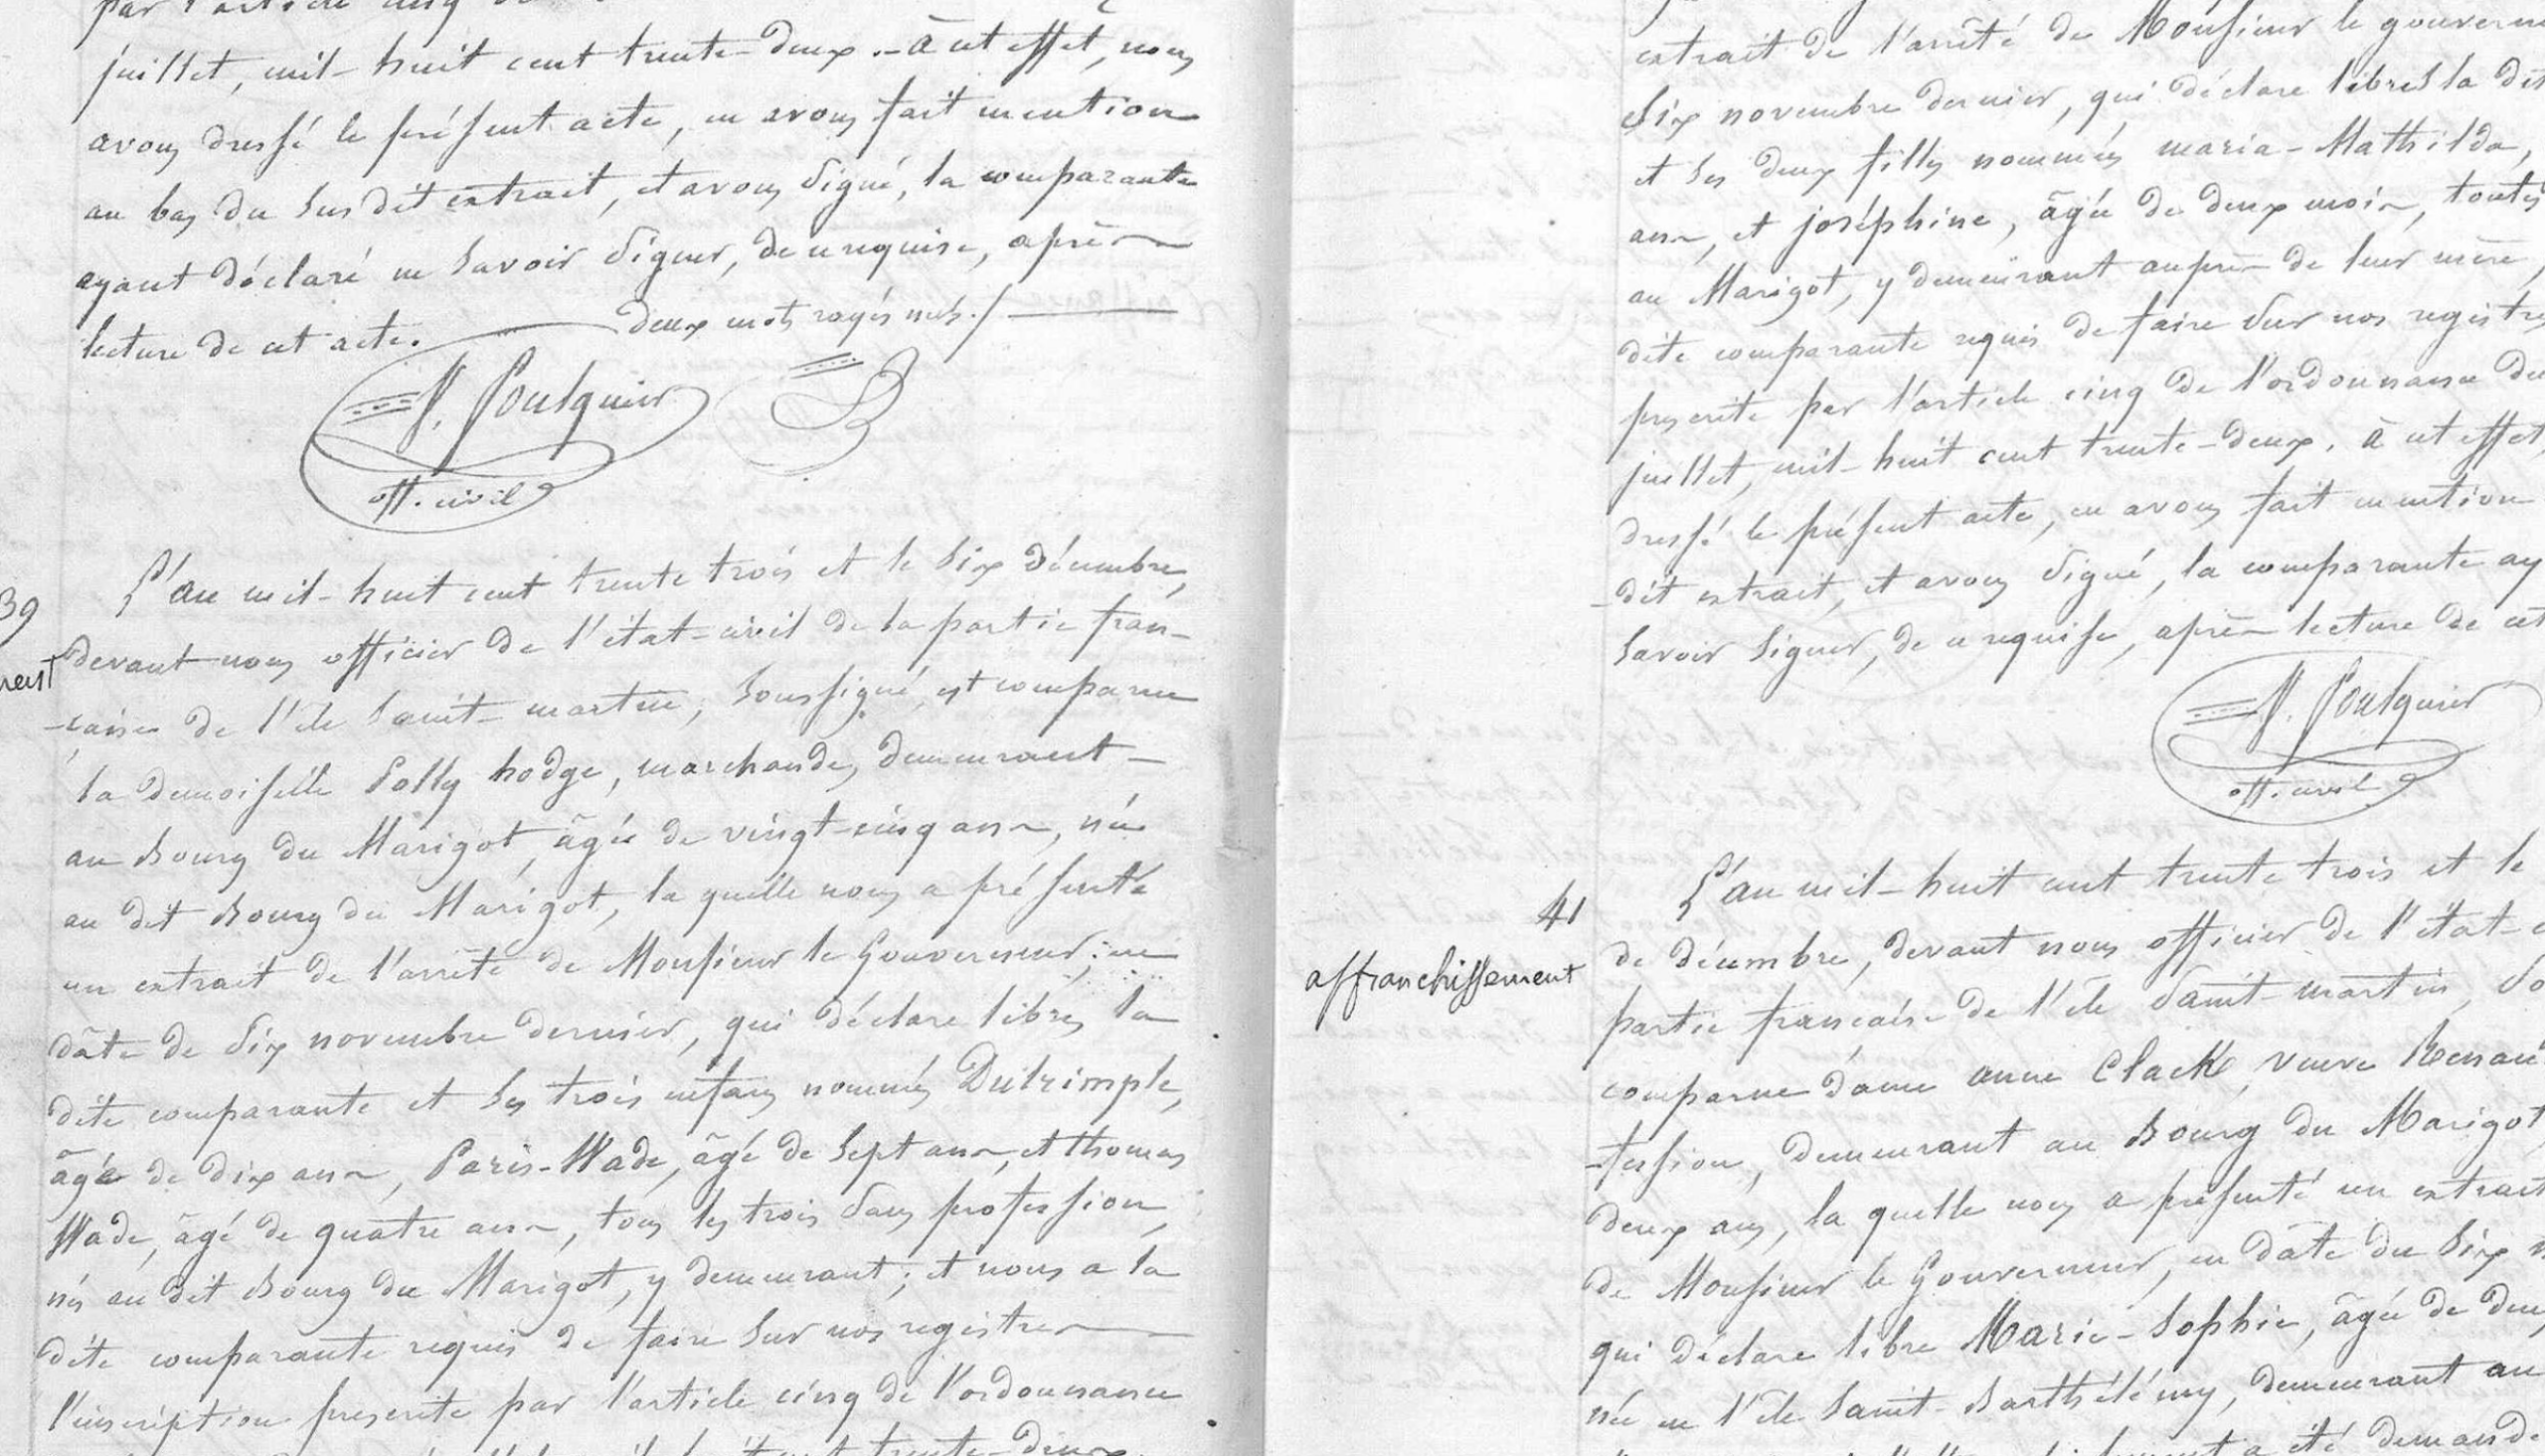 juillet, mil-huit cent trente-deux. - à cet effet, nous
avons dressé le présent acte, en avons fait mention
au bas du sus dit extrait, et avons signé, la comparante
ayant déclaré ne savoir signer, de ce requise, après
lecture de cet acte. deux mots rayés nuls./
off. civil
39
L'an mil-huit cent trente trois et le six décembre,
devant nous officier de l'état-civil de la partie fran-
-caise de l'ile saint-martin, soussigné, est comparue
la demoiselle Polly hodge, marchande, demeurant
au Bourg du Marigot, âgée de vingt-cinq ans, née
au dit Bourg du Marigot, la quelle nous a présenté
un extrait de l'arrêté de Monsieur le Gouverneur, en
dâte de six novembre dernier, qui déclare libres la
dite comparante et ses trois enfans nommés Dulrimple,
âgé de dix ans, Paris-Wade, âgé de sept ans, et thomas
Wade, âgé de quatre ans, tous les trois sans profession,
nés au dit Bourg du Marigot, y demeurant; et nous a la
dite comparante requis de faire sur nos registres
l'inscription prescrite par l'article cinq de l'ordonnance
trente-deux
extrait de l'arrêté de Monsieur le gouvern
six novembre dernier, qui déclare libres la dit
et ses deux filles nommées maria-Mathilda,
ans, et joséphine, âgée de deux mois, toutes
au Marigot, y demeurant auprès de leur mère,
dite comparante requis de faire sur nos registre
prescrite par l'article cinq de l'ordonnance du
juillet, mil-huit cent trente-deux. à cet effet,
dressé le présent acte, en avons fait mention
-dit extrait, et avons signé, la comparante ay
savoir signer, de ce requise, après lecture de cet
off. civil
41
affranchissement
L'an mil-huit cent trente trois et le
de décembre, devant nous officier de l'état-c
partie francaise de l'ile saint-martin, so
comparue dame anne Clack, veuve Renau
-fession, demeurant au Bourg du Marigot,
deux ans, la quelle nous a présenté un extrait
de Monsieur le Gouverneur, en dâte du six n
qui déclare libre Marie-Sophie, âgée de deu
née en l'ile saint-Barthélémy, demeurant au
a été demandé